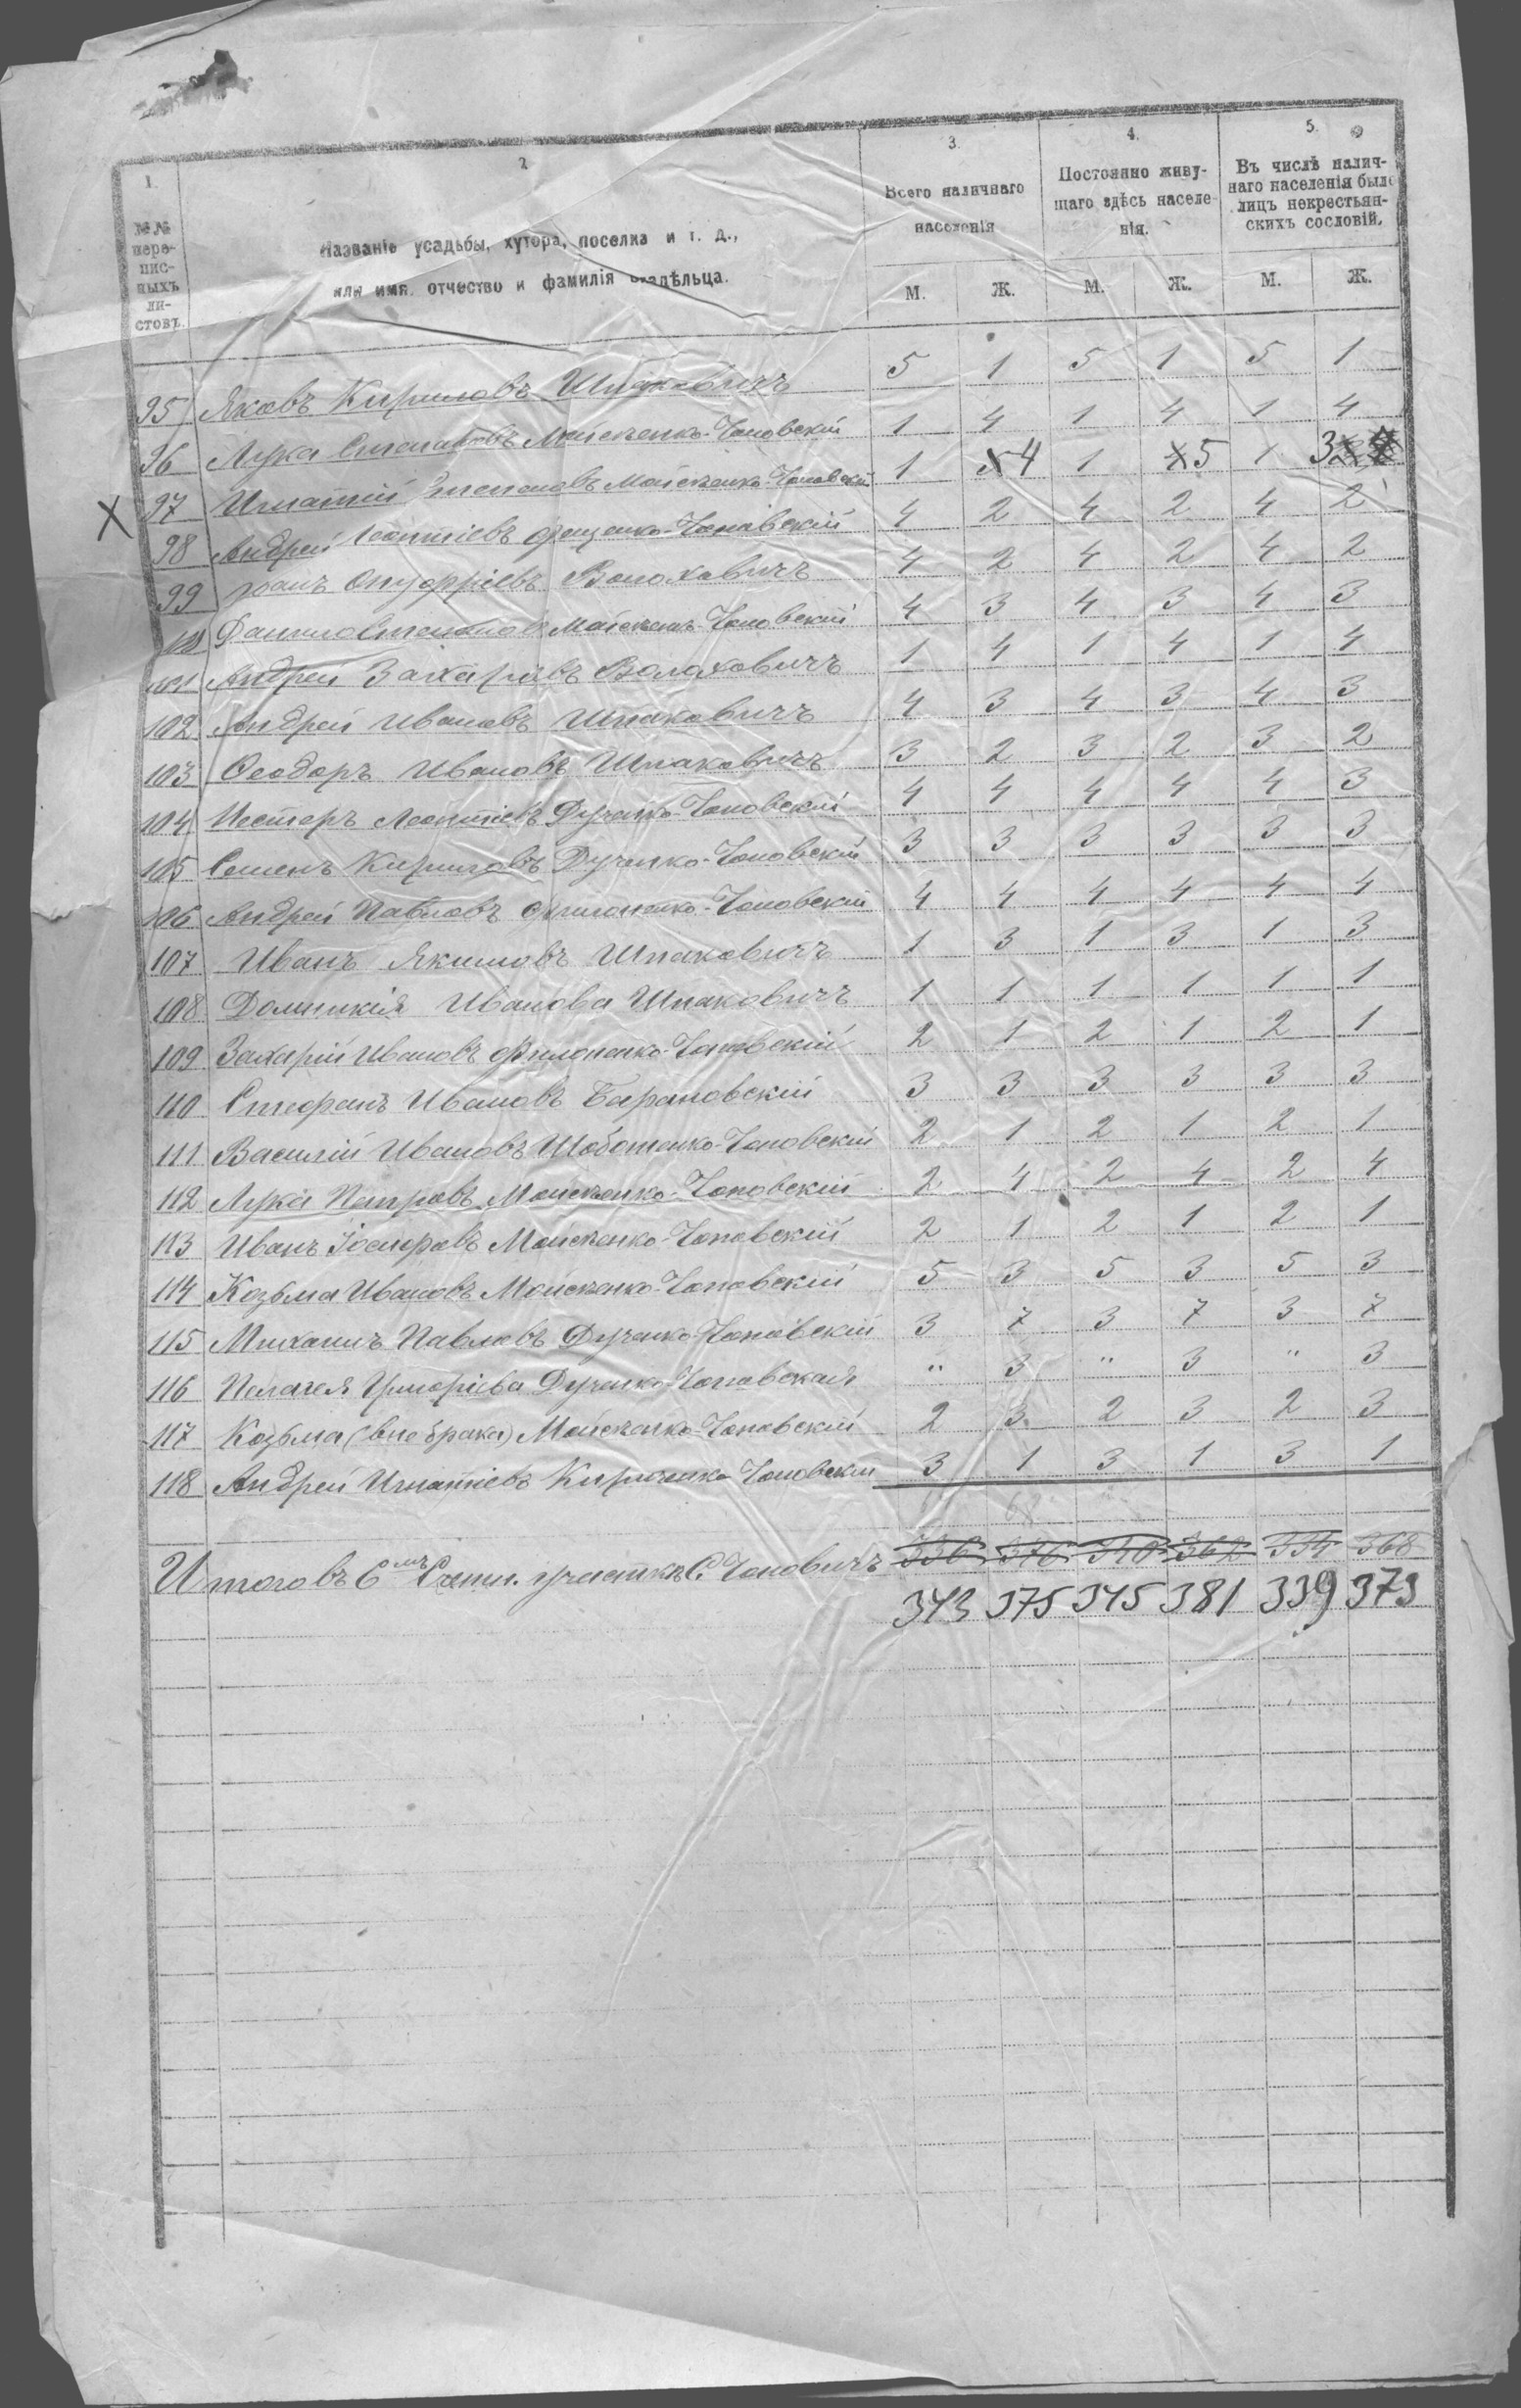 1. 2. 3. 4. 5.
№№ пере-
пис-
ныхъ
ли-
стовъ.
Названіе усадьбы, хутора, поселка и т. д.,
или имя, отчество и фамилія владѣльца.
Всего наличнаго
населенія
Постоянно живу-
щаго здѣсь населе-
нія.
Въ числѣ налич-
наго населенія было
лицъ некрестьян-
скихъ сословій.
М. Ж. М. Ж. М. Ж.
95 Яковъ Кириловъ Шпаковичъ 5 1 5 1 5 1
96 Лука Степановъ Мойсеенко-Чоповскій 1 4 1 4 1 4
97 Игнатій Степановъ Мойсеенко-Чоповскій 1 4 1 5 1 3
98 Андрей Леонтіевъ Фещенко-Чоповскій 4 2 4 2 4 2
99 Иванъ Онуфріевъ Волоховичъ 4 2 4 2 4 2
100 Данило Степановъ Мойсеенко-Чоповскій 4 3 4 3 4 3
101 Андрей Захаровъ Волоховичъ 1 4 1 4 1 4
102 Андрей Ивановъ Шпаковичъ 4 3 4 3 4 3
103 Феодоръ Ивановъ Шпаковичъ 3 2 3 2 3 2
104 Нестеръ Леонтіевъ Дученко-Чоповскій 4 4 4 4 4 3
105 Семенъ Кириловъ Дученко-Чоповскій 3 3 3 3 3 3
106 Андрей Павловъ Филоненко-Чоповскій 4 4 4 4 4 4
107 Иванъ Якимовъ Шпаковичъ 1 3 1 3 1 3
108 Домникія Иванова Шпаковичъ 1 1 1 1 1 1
109 Захарій Ивановъ Филоненко-Чоповскій 2 1 2 1 2 1
110 Стефанъ Ивановъ Барановскій 3 3 3 3 3 3
111 Василій Ивановъ Шоботенко-Чоповскій 2 1 2 1 2 1
112 Лука Петровъ Мойсеенко-Чоповскій 2 4 2 4 2 4
113 Иванъ Мойсеенко-Чоповскій 2 1 2 1 2 1
114 Козьма Ивановъ Мойсеенко-Чоповскій 5 3 5 3 5 3
115 Михаилъ Павловъ Дученко-Чоповскій 3 7 3 7 3 7
116 Пелагея Григоріева Дученко-Чоповская " 3 " 3 " 3
117 Козьма (внебрака) Мойсеенко-Чоповскій 2 3 2 3 2 3
118 Андрей Игнатіевъ Кириченко Чоповскій 3 1 3 1 3 1
Итого въ 6мъ Счетн. участкѣ С. Чоповичъ 336 376 340 362 334 368
343 375 345 381 339 373